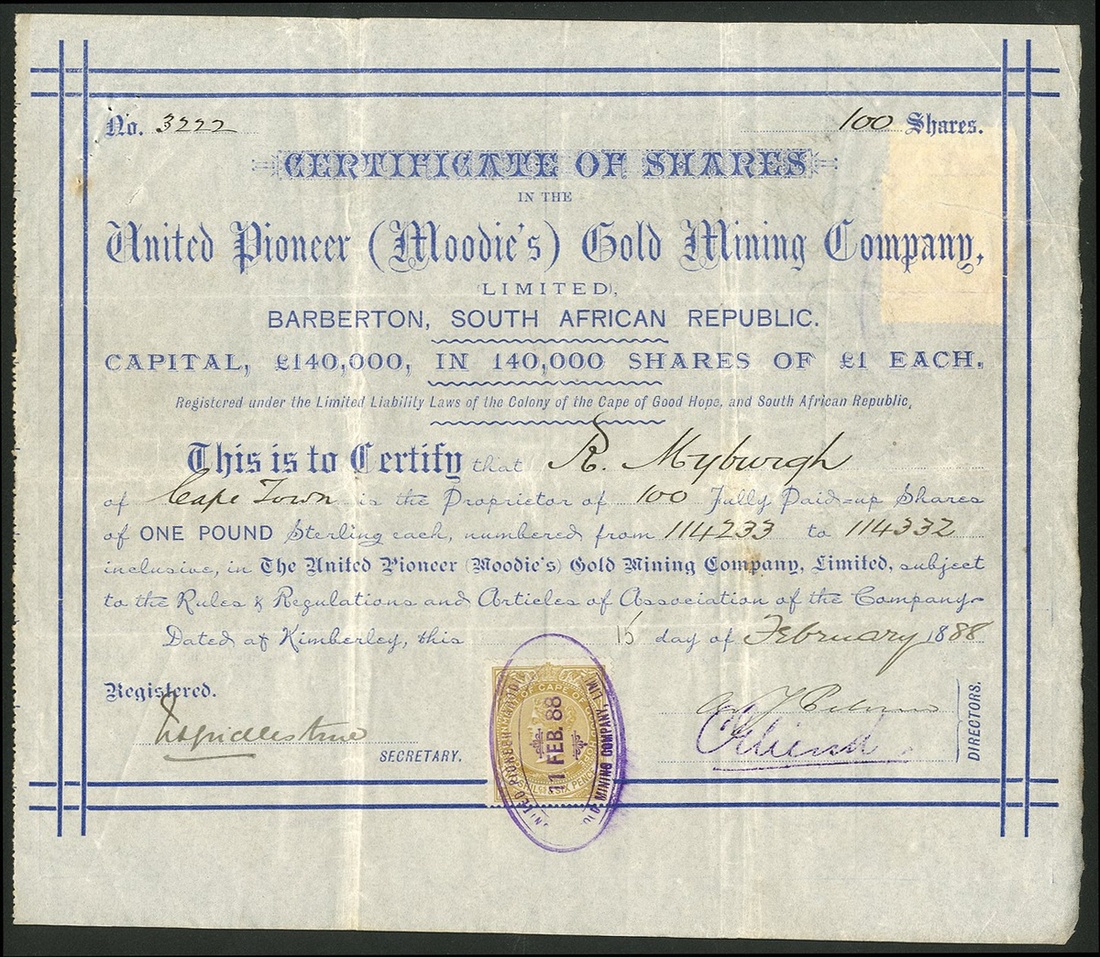 No. 3222 100 Shares.
CERTIFICATE OF SHARES
IN THE
United Pioneer (Moodie's) Gold Mining Company,
(LIMITED),
BARBERTON, SOUTH AFRICAN REPUBLIC.
CAPITAL, £140,000, IN 140,000 SHARES OF £1 EACH.
Registered under the Limited Liability Laws of the Colony of the Cape of Good Hope, and South African Republic,
This is to Certify that R. Myburgh
of Cape Town is the Proprietor of 100 Fully Paid-up Shares
of ONE POUND Sterling each, numbered from 114233 to 114332
inclusive, in The United Pioneer (Moodie's) Gold Mining Company, Limited, subject
to the Rules & Regulations and Articles of Association of the Company.
Dated at Kimberley, this day of February 1888
Registered.
SECRETARY.
DIRECTORS.
OF CAPE OF
SIX PENCE
1 FEB. 88
MINING COMPANY, LIM